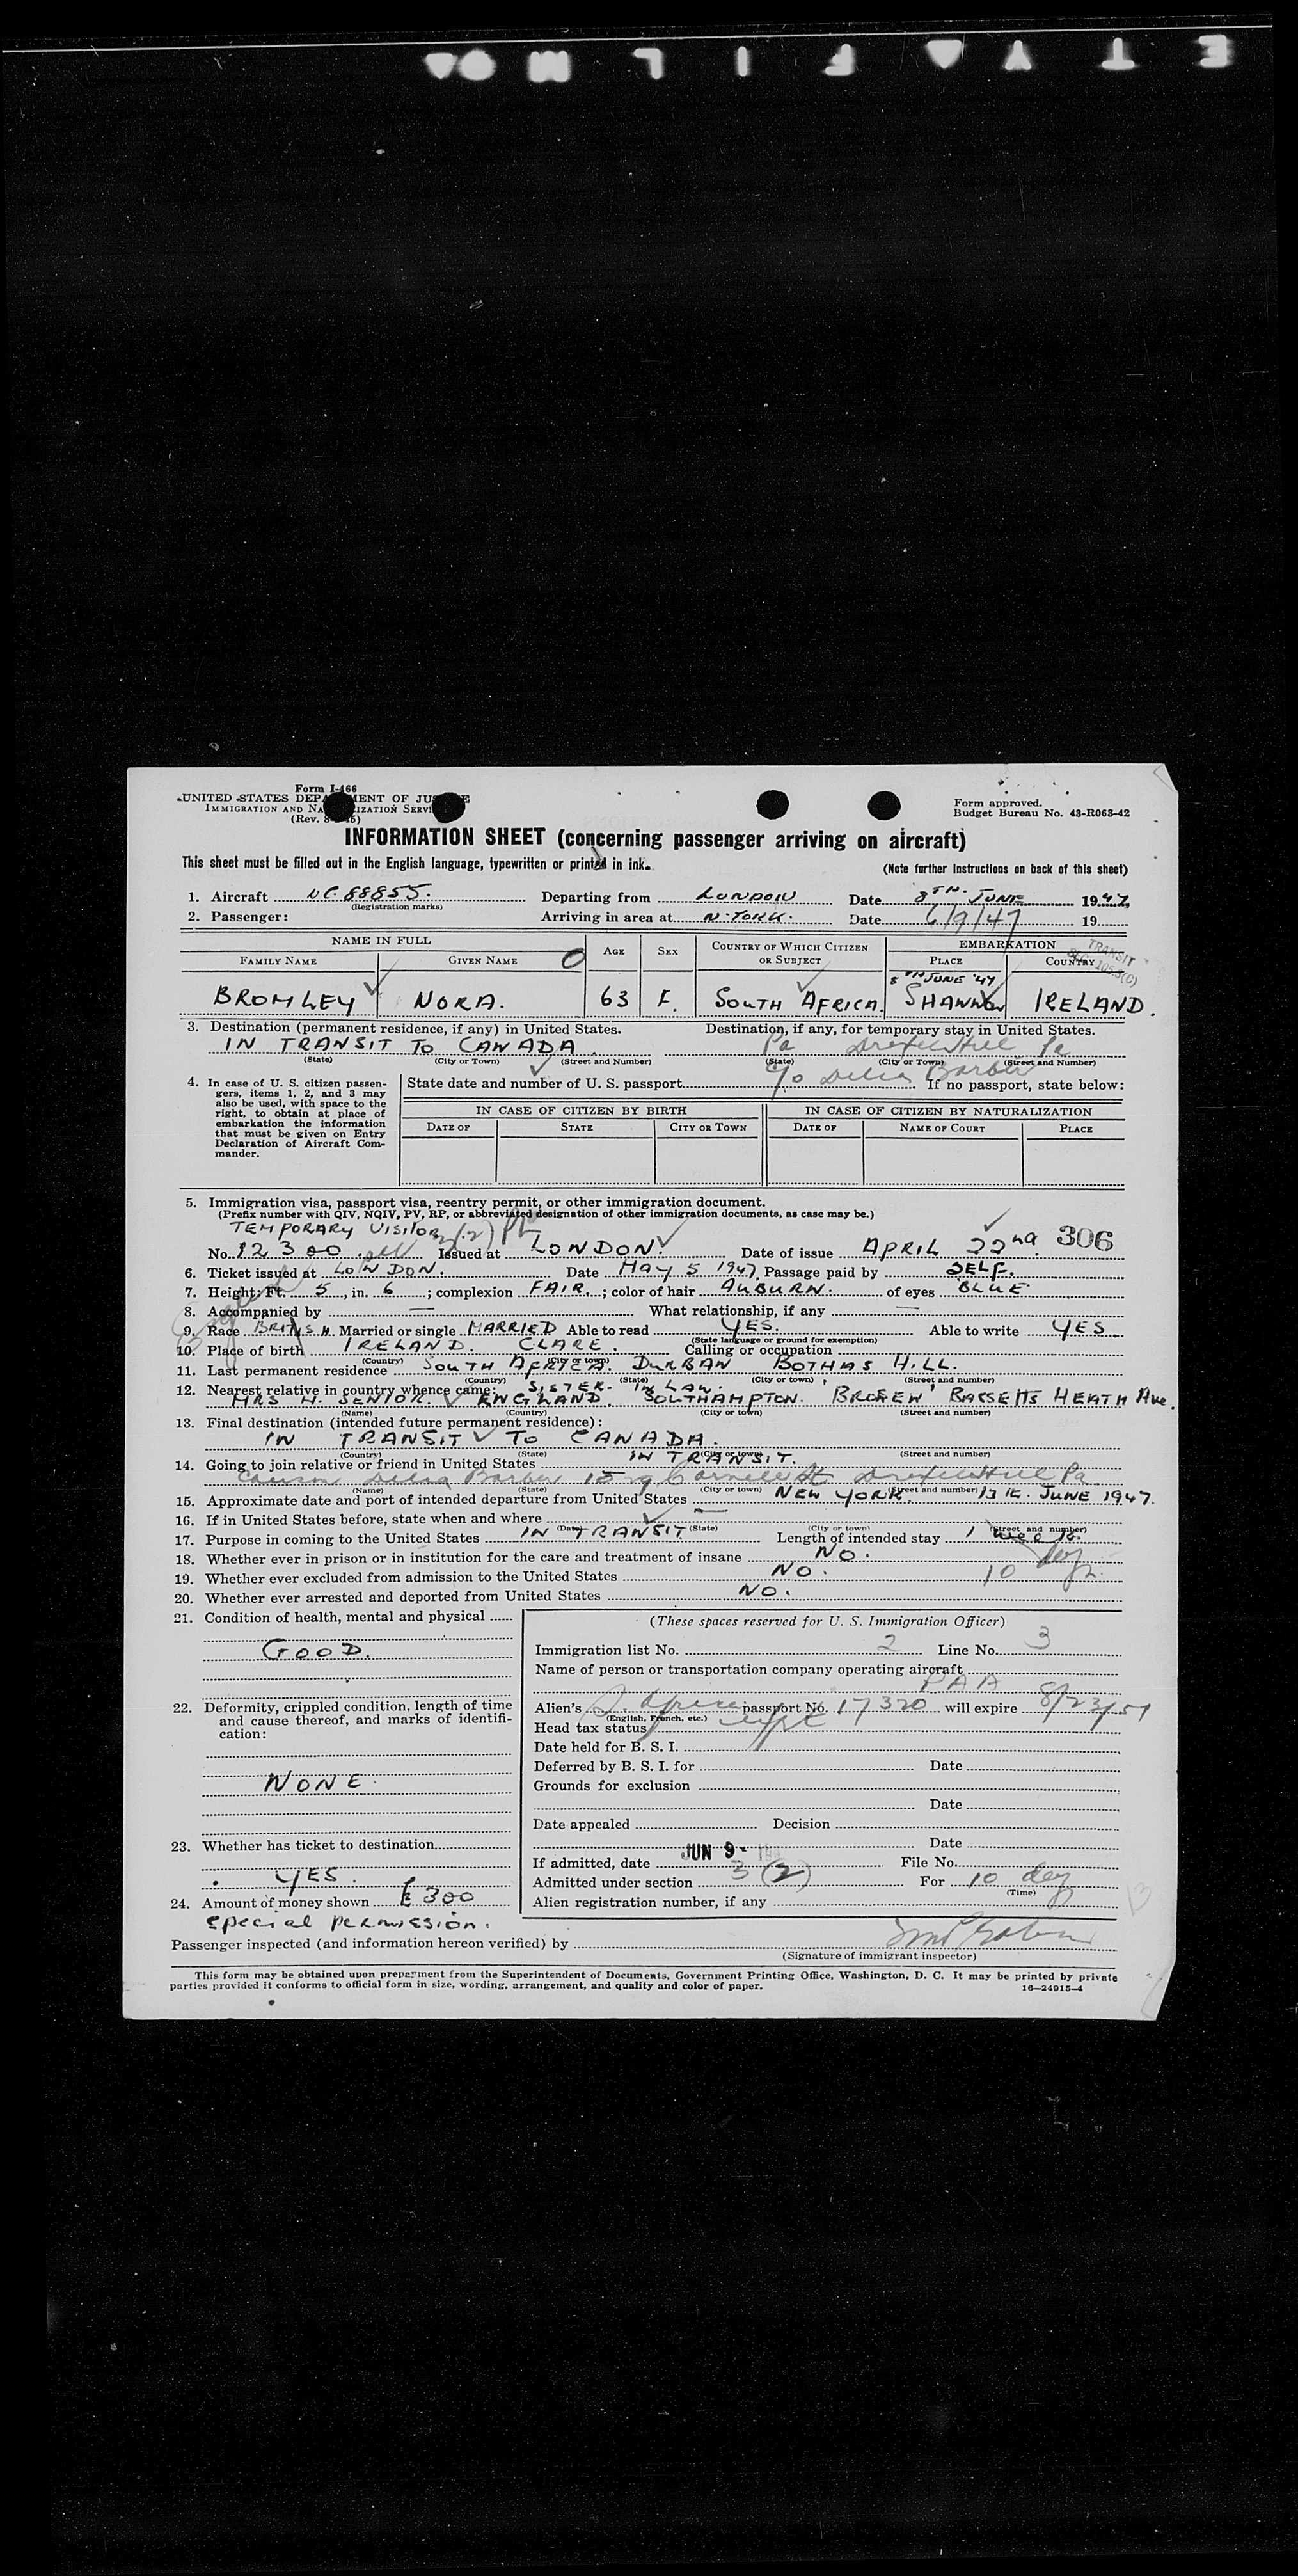 Form I-466
UNITED STATES DEPARTMENT OF JUSTICE
IMMIGRATION AND NATURALIZATION SERVICE
(Rev.
Form approved.
Budget Bureau No. 43-R063-42
INFORMATION SHEET (concerning passenger arriving on aircraft)
This sheet must be filled out in the English language, typewritten or printed in ink.
(Note further instructions on back of this sheet)
1. Aircraft NC 88855. Departing from LONDON Date 8TH. JUNE 1947
(Registration marks)
2. Passenger: Arriving in area at N. YORK. Date 6/9/47 19
NAME IN FULL AGE SEX COUNTRY OF WHICH CITIZEN OR SUBJECT EMBARKATION
FAMILY NAME GIVEN NAME PLACE COUNTRY
TRANSIT
8TH JUNE '47
BROMLEY NORA. 63 F. SOUTH AFRICA. SHANNON IRELAND.
3. Destination (permanent residence, if any) in United States. Destination, if any, for temporary stay in United States.
IN TRANSIT TO CANADA. Pa Drexel Hill Pa
(State) (City or Town) (Street and Number) (State) (City or Town) (Street and Number)
c/o Delia Barber
4. In case of U. S. citizen passengers, items 1, 2, and 3 may also be used, with space to the right, to obtain at place of embarkation the information that must be given on Entry Declaration of Aircraft Commander.
State date and number of U. S. passport If no passport, state below:
IN CASE OF CITIZEN BY BIRTH IN CASE OF CITIZEN BY NATURALIZATION
DATE OF STATE CITY OR TOWN DATE OF NAME OF COURT PLACE
5. Immigration visa, passport visa, reentry permit, or other immigration document.
(Prefix number with QIV, NQIV, PV, RP, or abbreviated designation of other immigration documents, as case may be.)
TEMPORARY VISITOR 3(2) PV
No. 12300 Issued at LONDON. Date of issue APRIL 22nd 306
6. Ticket issued at LONDON. Date MAY 5 1947. Passage paid by SELF.
7. Height: Ft. 5, in. 6; complexion FAIR.; color of hair AUBURN. of eyes BLUE
8. Accompanied by — What relationship, if any —
9. Race BRITISH Married or single MARRIED Able to read YES. Able to write YES
(State language or ground for exemption)
10. Place of birth IRELAND. CLARE. Calling or occupation
(Country) (City or town)
11. Last permanent residence SOUTH AFRICA. DURBAN BOTHAS HILL.
(Country) (State) (City or town) (Street and number)
12. Nearest relative in country whence came: SISTER. IN LAW.
MRS H. SENIOR. ENGLAND. SOUTHAMPTON. BASSETTS HEATH Ave.
(Name) (Country) (City or town) (Street and number)
13. Final destination (intended future permanent residence):
IN TRANSIT TO CANADA.
(Country) (State) (City or town) (Street and number)
14. Going to join relative or friend in United States IN TRANSIT.
Cousin Delia Barber Drexel Hill Pa
(Name) (State) (City or town) (Street and number)
15. Approximate date and port of intended departure from United States NEW YORK. 13 JUNE 1947.
16. If in United States before, state when and where —
(Date) (State) (City or town) (Street and number)
17. Purpose in coming to the United States IN TRANSIT Length of intended stay 1 week.
18. Whether ever in prison or in institution for the care and treatment of insane NO.
19. Whether ever excluded from admission to the United States NO. 10 days
20. Whether ever arrested and deported from United States NO.
21. Condition of health, mental and physical
GOOD.
22. Deformity, crippled condition, length of time and cause thereof, and marks of identification:
NONE.
23. Whether has ticket to destination
YES.
24. Amount of money shown £300
special permission.
(These spaces reserved for U. S. Immigration Officer)
Immigration list No. 2 Line No. 3
Name of person or transportation company operating aircraft
PAA
Alien's S. Africa passport No. 17320 will expire 8/23/51
(English, French, etc.)
Head tax status
Date held for B. S. I.
Deferred by B. S. I. for Date
Grounds for exclusion
Date
Date appealed Decision
Date
If admitted, date JUN 9 - File No.
Admitted under section 3 (2) For 10 days
(Time)
Alien registration number, if any
Passenger inspected (and information hereon verified) by
(Signature of immigrant inspector)
This form may be obtained upon prepayment from the Superintendent of Documents, Government Printing Office, Washington, D. C. It may be printed by private
parties provided it conforms to official form in size, wording, arrangement, and quality and color of paper. 16—24915-4